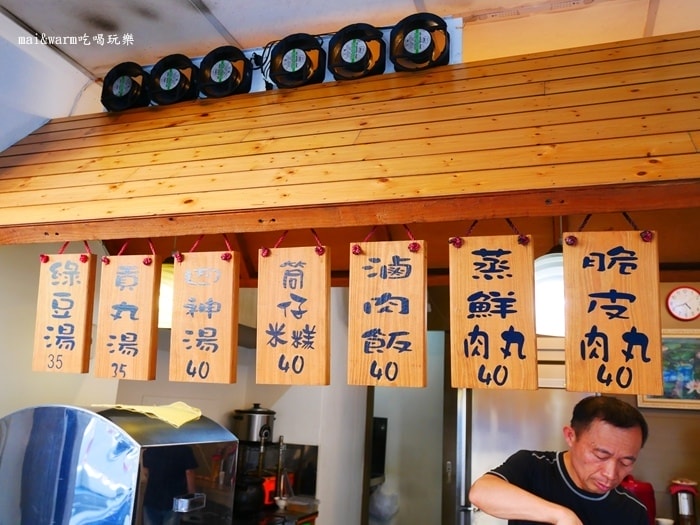 mai&warm吃喝玩樂
綠豆湯
35
貢丸湯
35
四神湯
40
筒仔米糕
40
滷肉飯
40
蒸鮮肉丸
40
脆皮肉丸
40